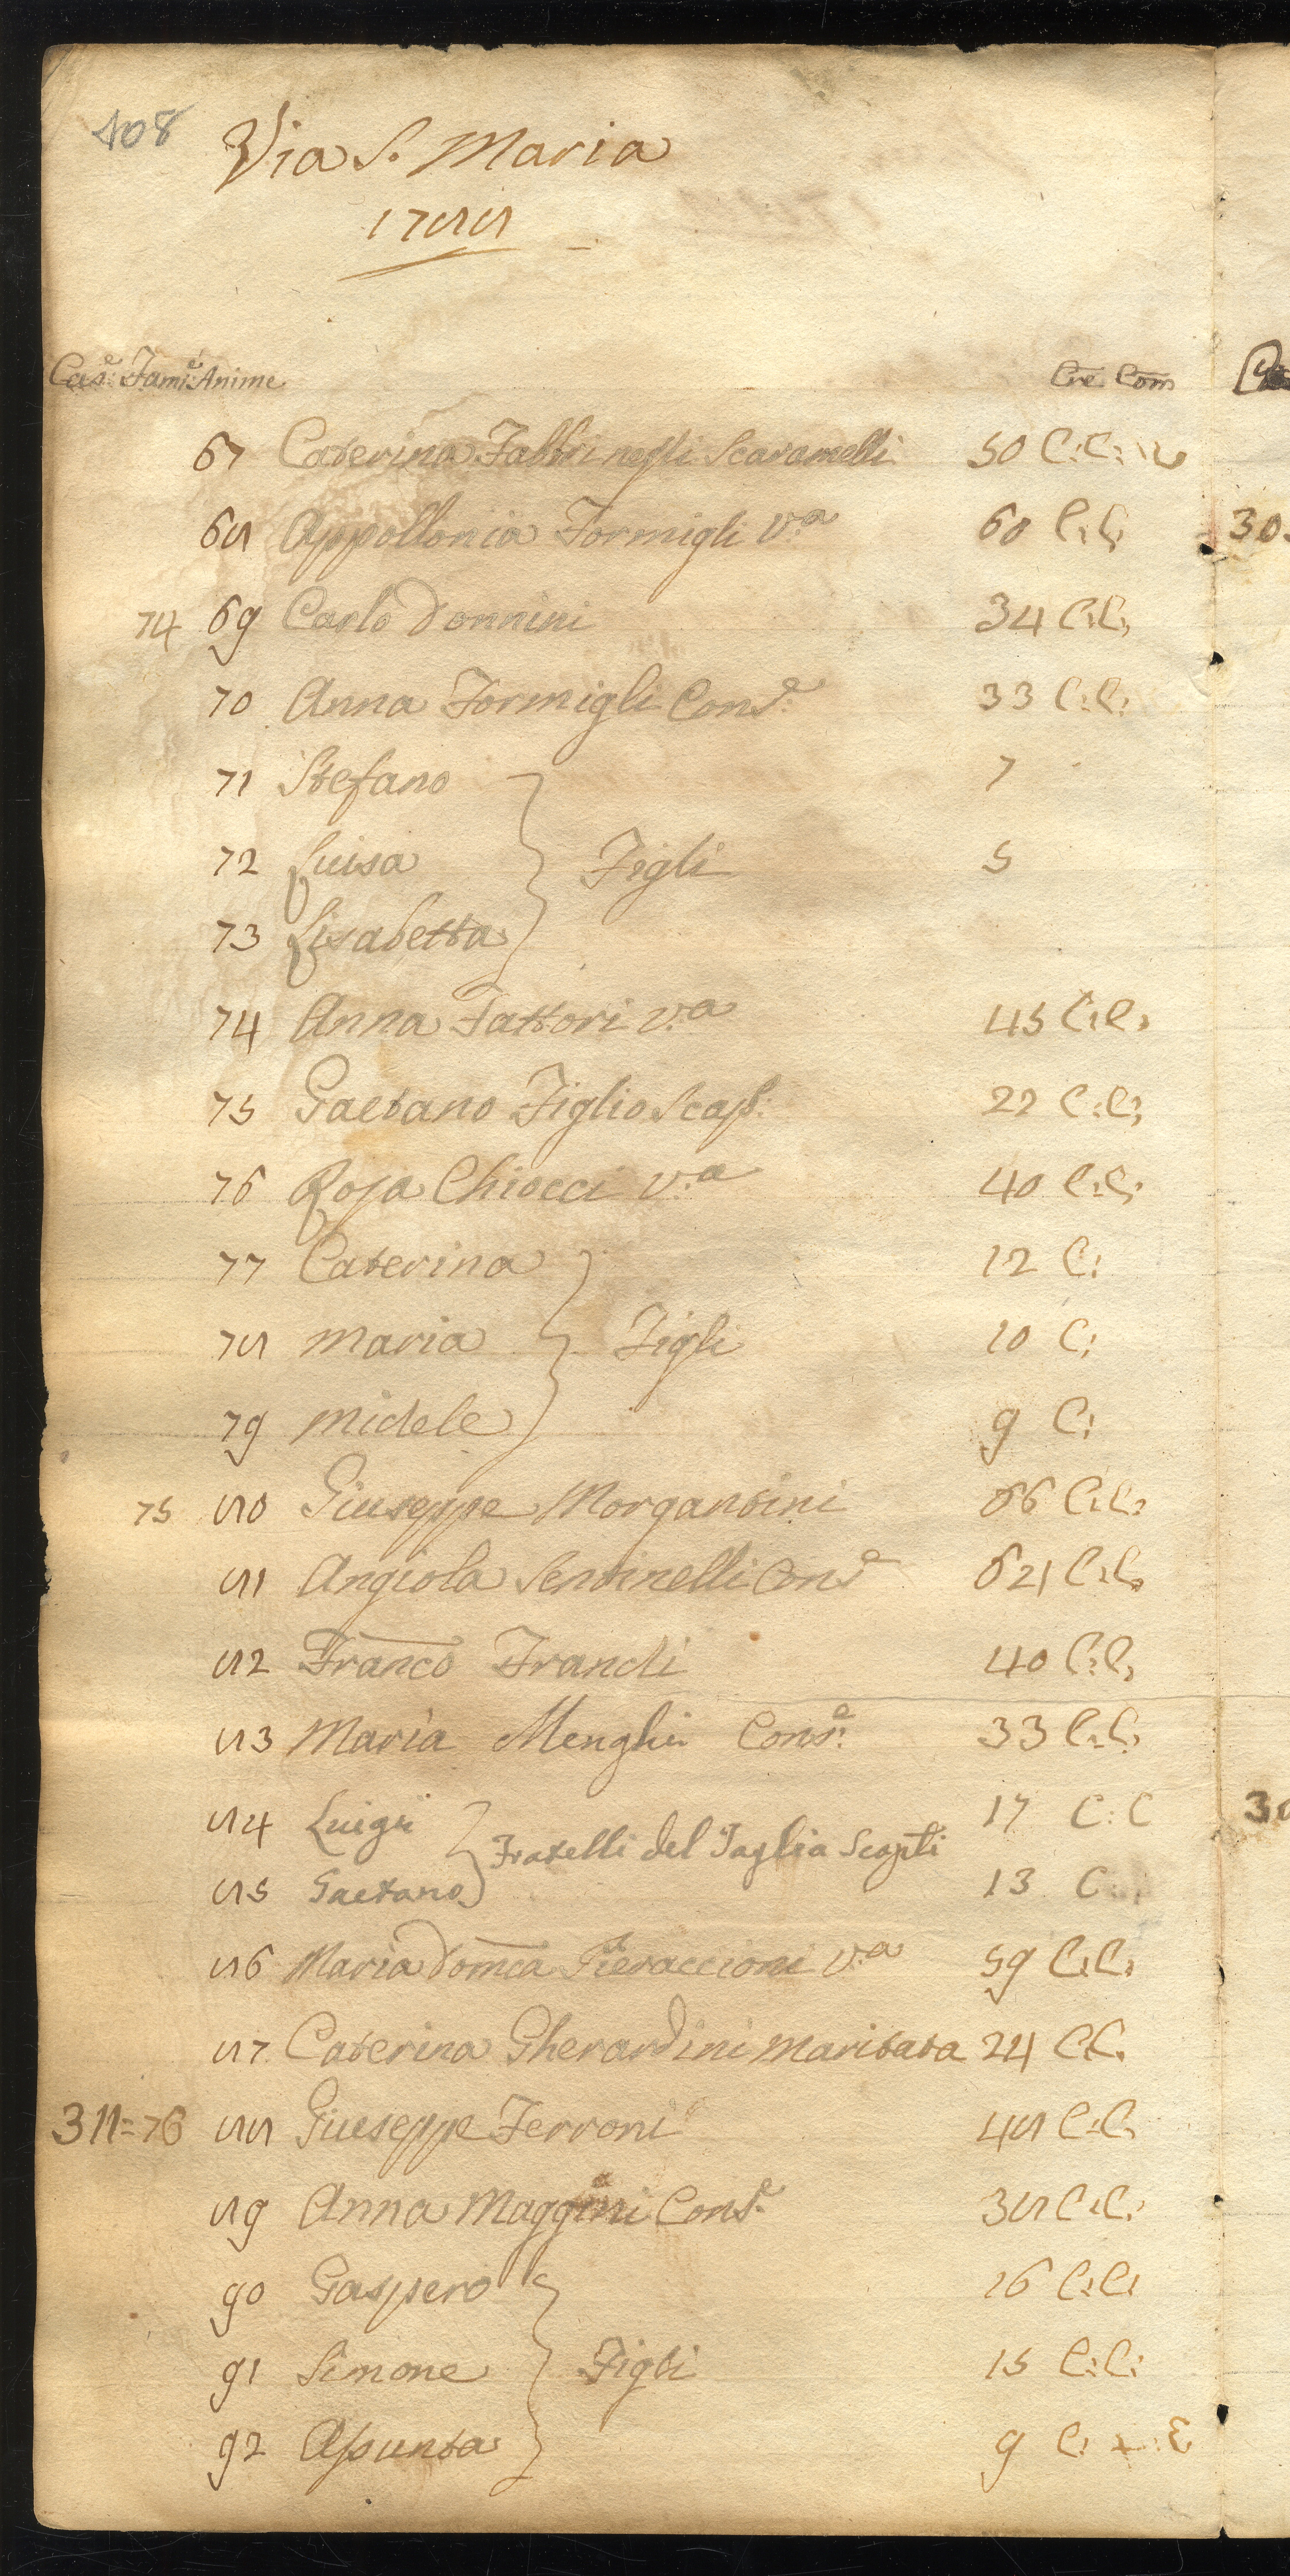 408
Via S. Maria
1788
Cas.e Fam.e Anime Cre Com
67 Caterina Fabbri negli Scaramelli 50 C:C:
68 Appollonia Formigli V.a 60 C:C:
74 69 Carlo Donnini 34 C:C:
70 Anna Formigli Cons.e 33 C:C:
71 Stefano 7
72 Luisa Figli 5
73 Lisabetta
74 Anna Fattori v.a 45 C:C:
75 Gaetano Figlio Scap: 22 C:C:
76 Rosa Chiocci v.a 40 C:C:
77 Caterina 12 C:
78 Maria Figli 10 C:
79 Michele 9 C:
75 80 Giuseppe Morgantini 66 C:C:
81 Angiola Sentinelli Cons.e 621 C:C:
82 Franco Franchi 40 C:C:
83 Maria Menghi Cons.e 33 C:C:
84 Luigi 17 C:C
Fratelli del Taglia Scapli
85 Gaetano 13 C:
86 Maria Domca Pieraccioni V.a 59 C:C:
87 Caterina Gherardini Maritata 24 C:C:
311=76 88 Giuseppe Ferroni 48 C:C:
89 Anna Maggini Cons.e 38 C:C:
90 Gaspero 16 C:C:
91 Simone Figli 15 C:C:
92 Assunta 9 C:
30